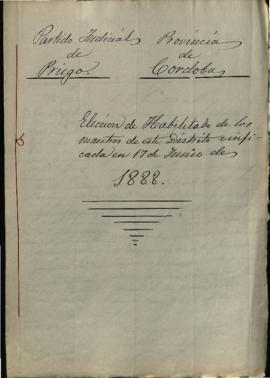 Partido Judicial
de
Priego.
Provincia
de
Cordoba
Elección de Habilitado de los
maestros de este Distrito verifi-
cada en 17 de Junio de
1888.